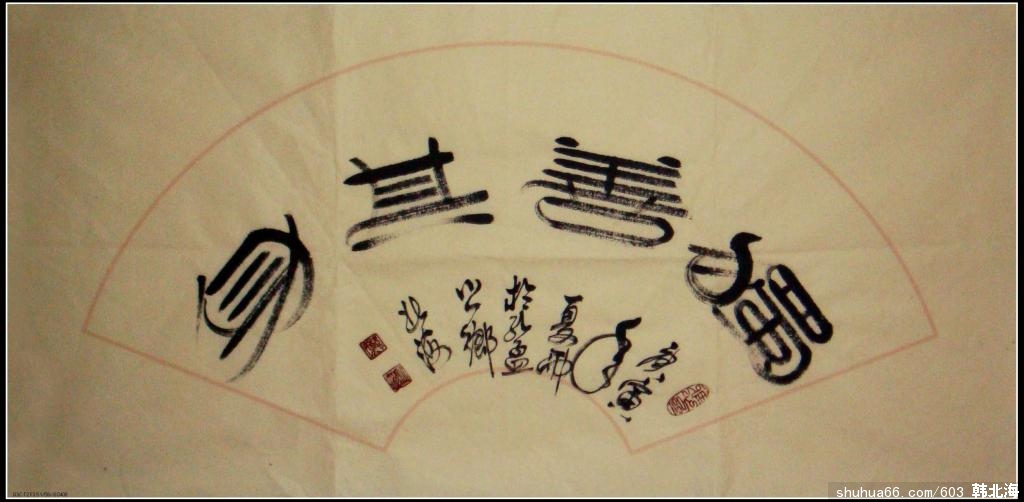 獨善其身
庚寅
年
夏
於孔孟
之鄉
北海
shuhua66.com/603 韩北海